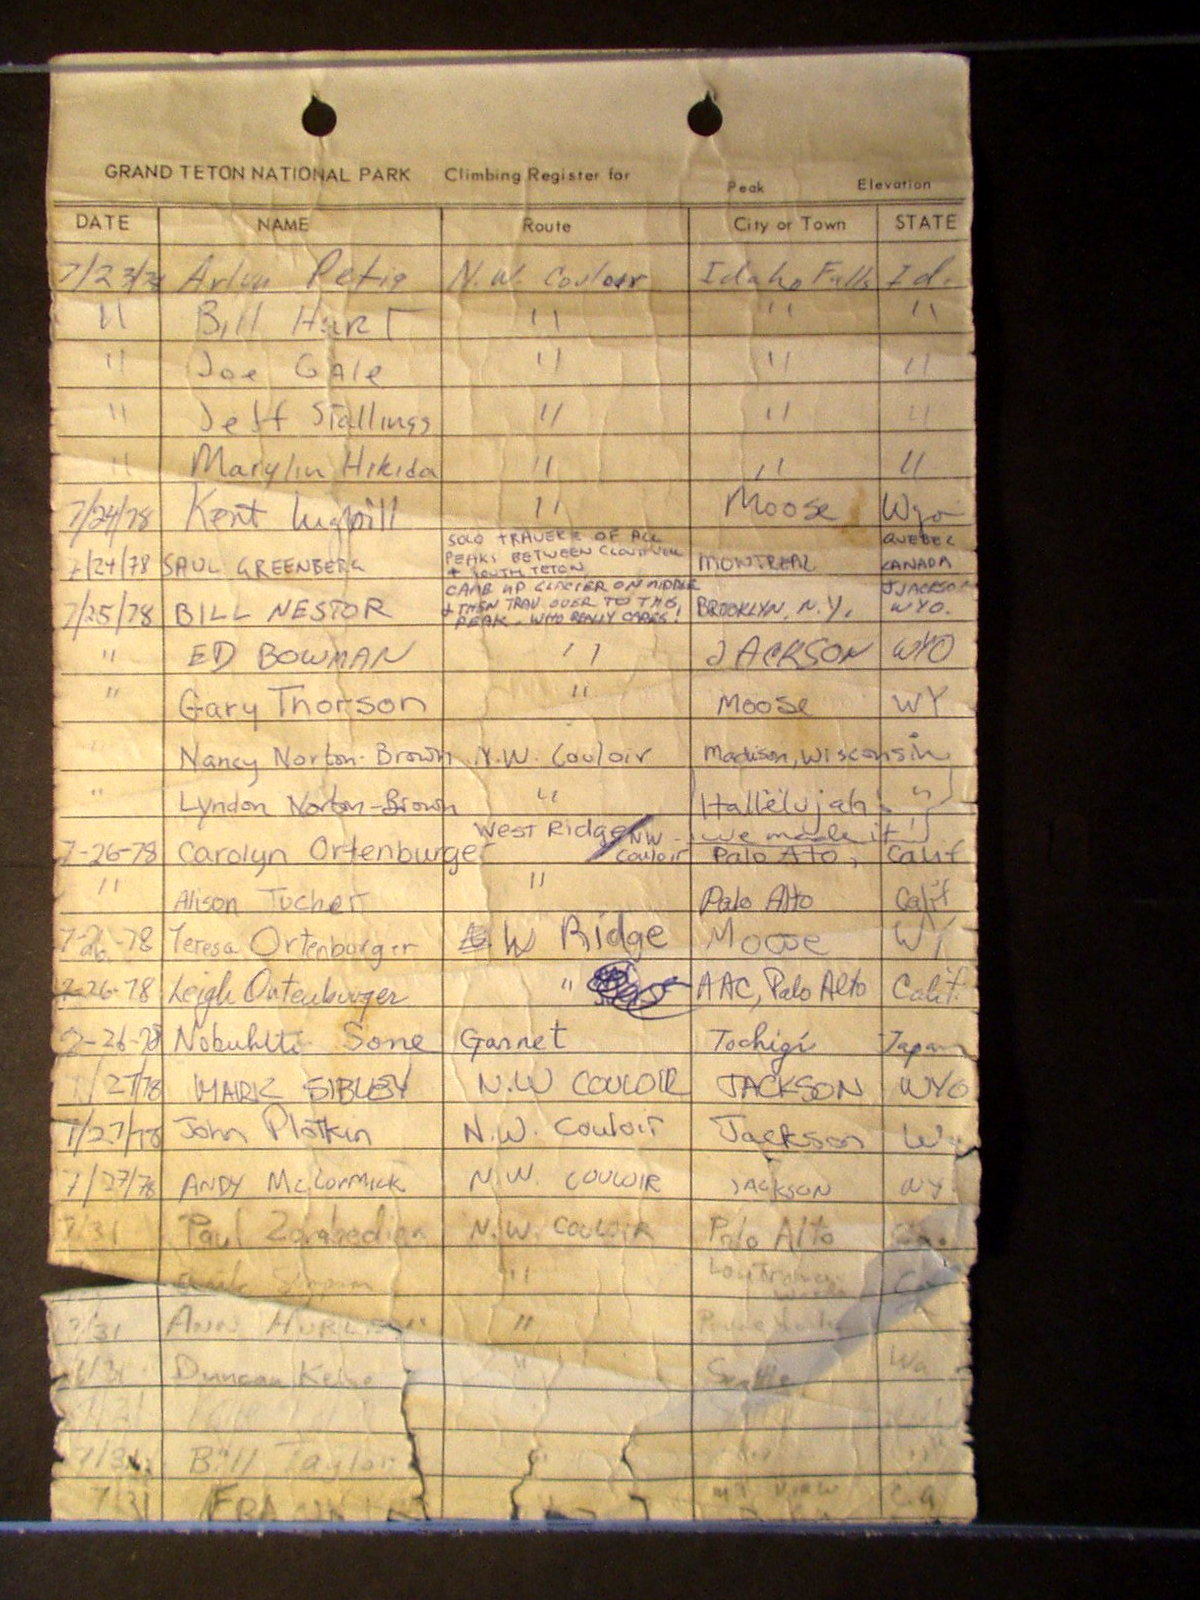 GRAND TETON NATIONAL PARK Climbing Register for Peak Elevation
DATE NAME Route City or Town STATE
7/23/78 Arlyn Petig N.W. Couloir Idaho Falls Id.
" Bill Hurt " " "
" Joe Gale " " "
" Jeff Stallings " " "
" Marylin Hikida " " "
7/24/78 Kent " Moose Wyo
7/24/78 SAUL GREENBERG SOLO TRAVERSE OF ALL PEAKS BETWEEN CLOUDVEIL + SOUTH TETON MONTREAL QUEBEC CANADA
7/25/78 BILL NESTOR CAME UP GLACIER ON MIDDLE + THEN TRAV OVER TO THIS PEAK. WHO REALLY CARES! BROOKLYN, N.Y. JJACKSON WYO.
" ED BOWMAN " JACKSON WYO
" Gary Thorson " Moose WY
" Nancy Norton-Brown N.W. Couloir Madison, Wisconsin
" Lyndon Norton-Brown " Hallelujah! "
we made it!
7-26-78 Carolyn Ortenburger West Ridge / NW Couloir Palo Alto, Calif
" Alison " Palo Alto Calif
7-26-78 Teresa Ortenburger W Ridge Moose WY
7-26-78 Leigh Ortenburger " AAC, Palo Alto Calif.
7-26-78 Sone Garnet Tochigi Japan
7/27/78 MARK SIBLEY N.W COULOIR JACKSON WYO
7/27/78 John Plotkin N.W. Couloir Jackson Wy
7/27/78 ANDY McCORMICK N.W. COULOIR JACKSON WY
7/31 Paul N.W. COULOIR Palo Alto
"
7/31 ANN "
7/31 Duncan " Seattle Wa
7/31 Bill Taylor
7/31 FRANK MT VIEW Ca